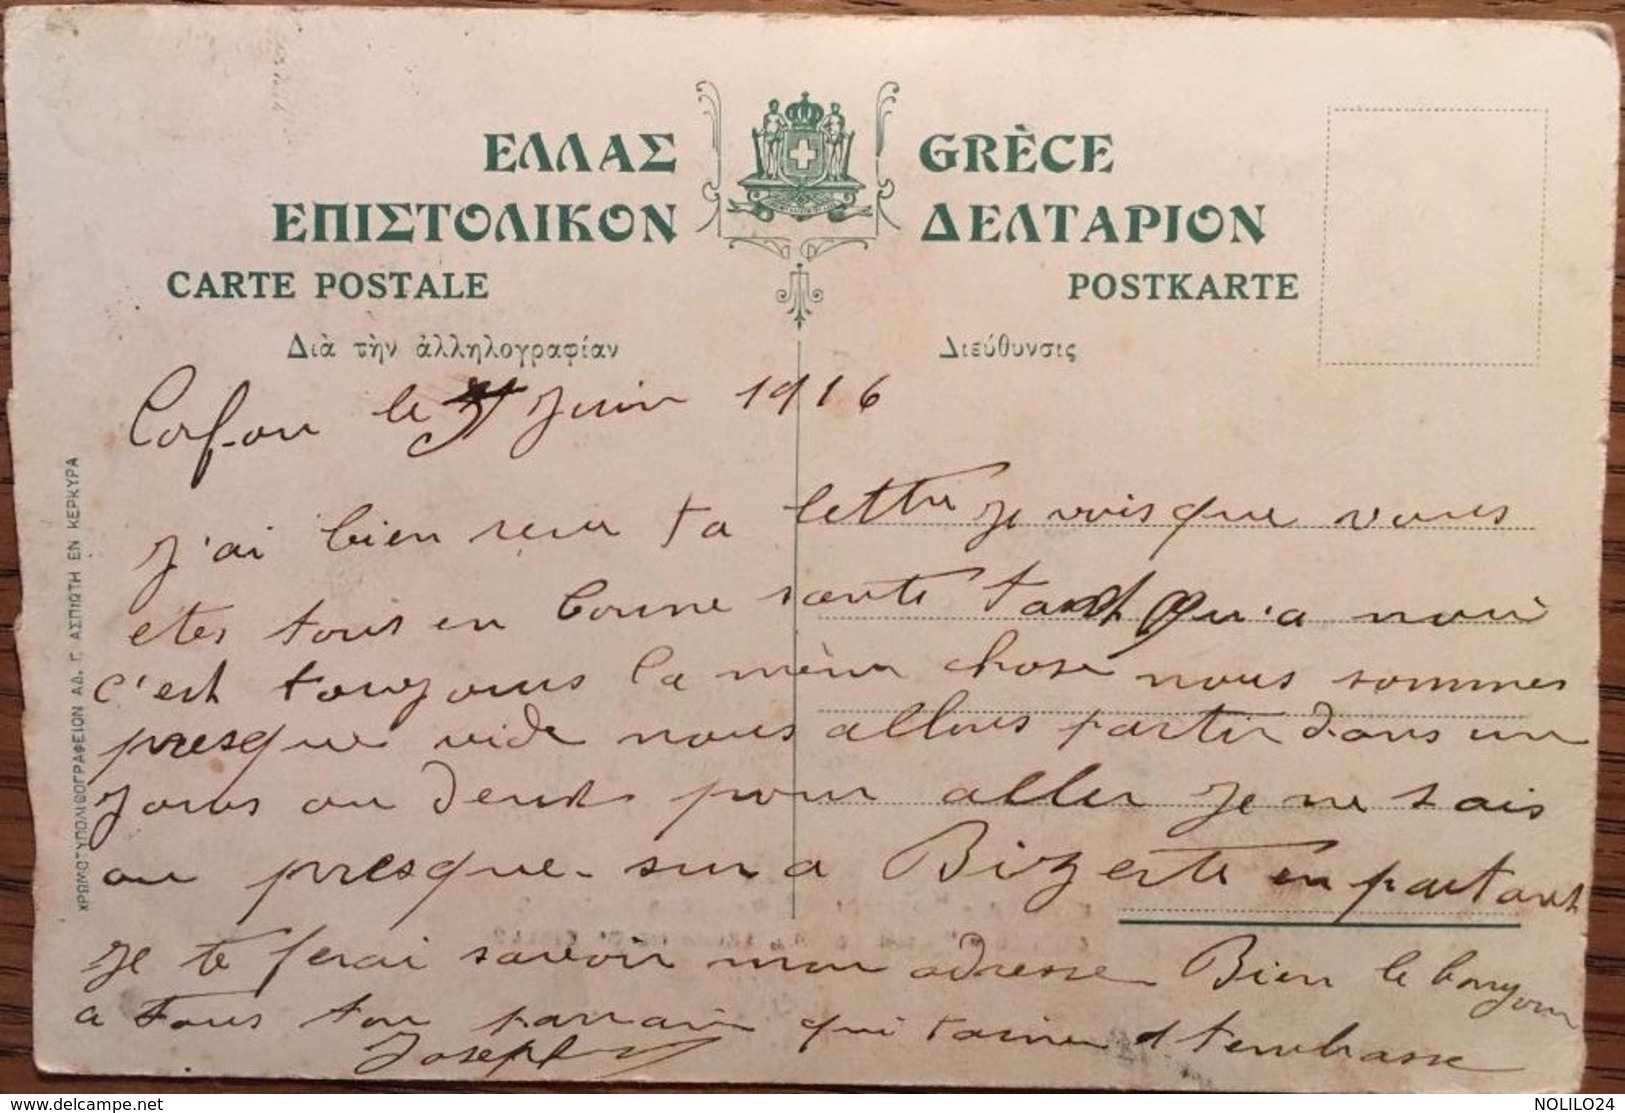 ΕΛΛΑΣ GRÈCE
ΕΠΙΣΤΟΛΙΚΟΝ ΔΕΛΤΑΡΙΟΝ
CARTE POSTALE POSTKARTE
Διὰ τὴν ἀλληλογραφίαν Διεύθυνσις
Corfou le Juin 1916
J'ai bien recu ta lettre je vois que vous
etes tous en bonne sante tant qu'a nous
c'est toujours la même chose nous sommes
presque vide nous allons partir dans un
jours ou deux pour aller je ne sais
ou presque sur a Bizerte en partant
je te ferai savoir mon adresse Bien le bonjour
a tous ton parrain qui t'aime et t'embrasse
Joseph
ΧΡΩΜΟΤΥΠΟΛΙΘΟΓΡΑΦΕΙΟΝ ΑΔ. Γ. ΑΣΠΙΩΤΗ ΕΝ ΚΕΡΚΥΡΑ
www.delcampe.net NOLILO24